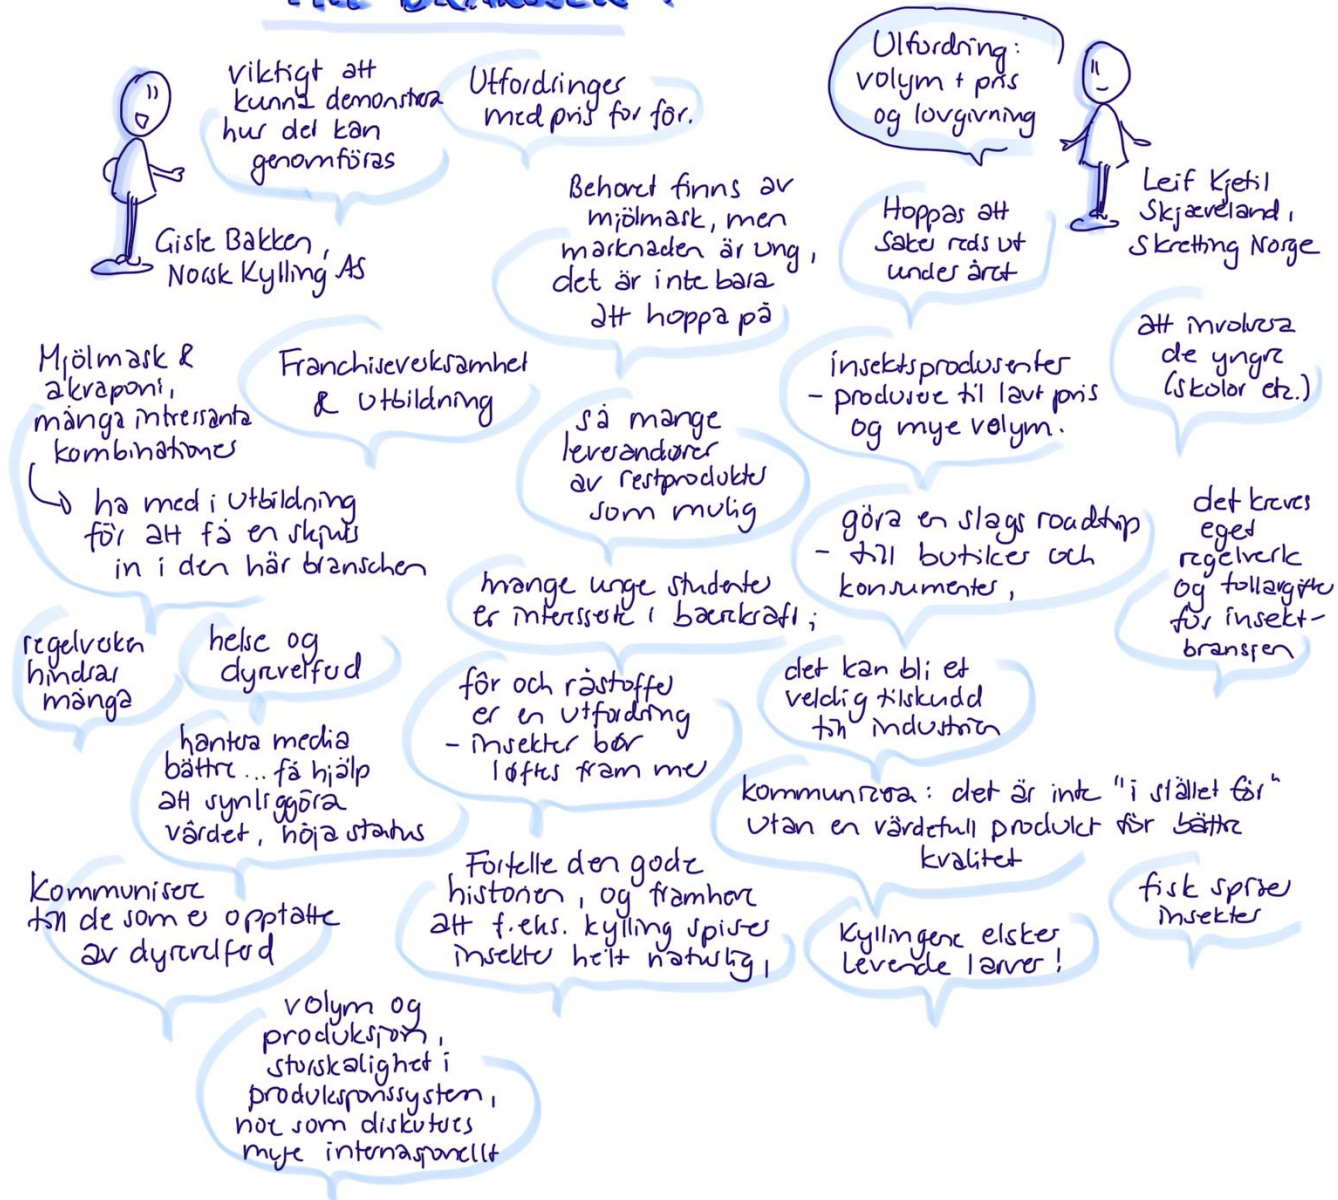 viktigt att
kunna demonstrera
hur det kan
genomföras
Utfordringer
med pris for fôr.
Utfordring:
volym + pris
og lovgivning
Gisle Bakken,
Norsk Kylling AS
Leif Kjetil
Skjæveland,
Skretting Norge
Behovet finns av
mjölmask, men
marknaden är ung,
det är inte bara
att hoppa på
Hoppas att
saker reds ut
under året
att involvera
de yngre
(skolor etc.)
Mjölmask &
akvaponi,
många intressanta
kombinationer
ha med i utbildning
för att få en skjuts
in i den här branschen
Franchiseverksamhet
& utbildning
så mange
leverandører
av restprodukter
som mulig
insektsprodusenter
- produsere til lavt pris
og mye volym.
göra en slags roadtrip
- till butiker och
konsumenter,
det kreves
eget
regelverk
og tollavgifter
för insekt-
bransjen
mange unge studenter
er interessert i bærekraft;
regelverken
hindrar
många
helse og
dyrevelferd
fôr och råstoffer
er en utfordring
- insekter bør
løftes fram mer
det kan bli et
veldig tilskudd
till industrien
hantera media
bättre... få hjälp
att synliggöra
värdet, höja status
kommunicera: det är inte "i stället för"
utan en värdefull produkt för bättre
kvalitet
Kommunisere
till de som er opptatte
av dyrevelferd
Fortelle den gode
historien, og framheve
att f.eks. kylling spiser
insekter helt naturlig,
Kyllingene elsker
levende larver!
fisk spiser
insekter
volym og
produksjon,
storskalighet i
produksjonssystem,
noe som diskuteres
mye internasjonellt